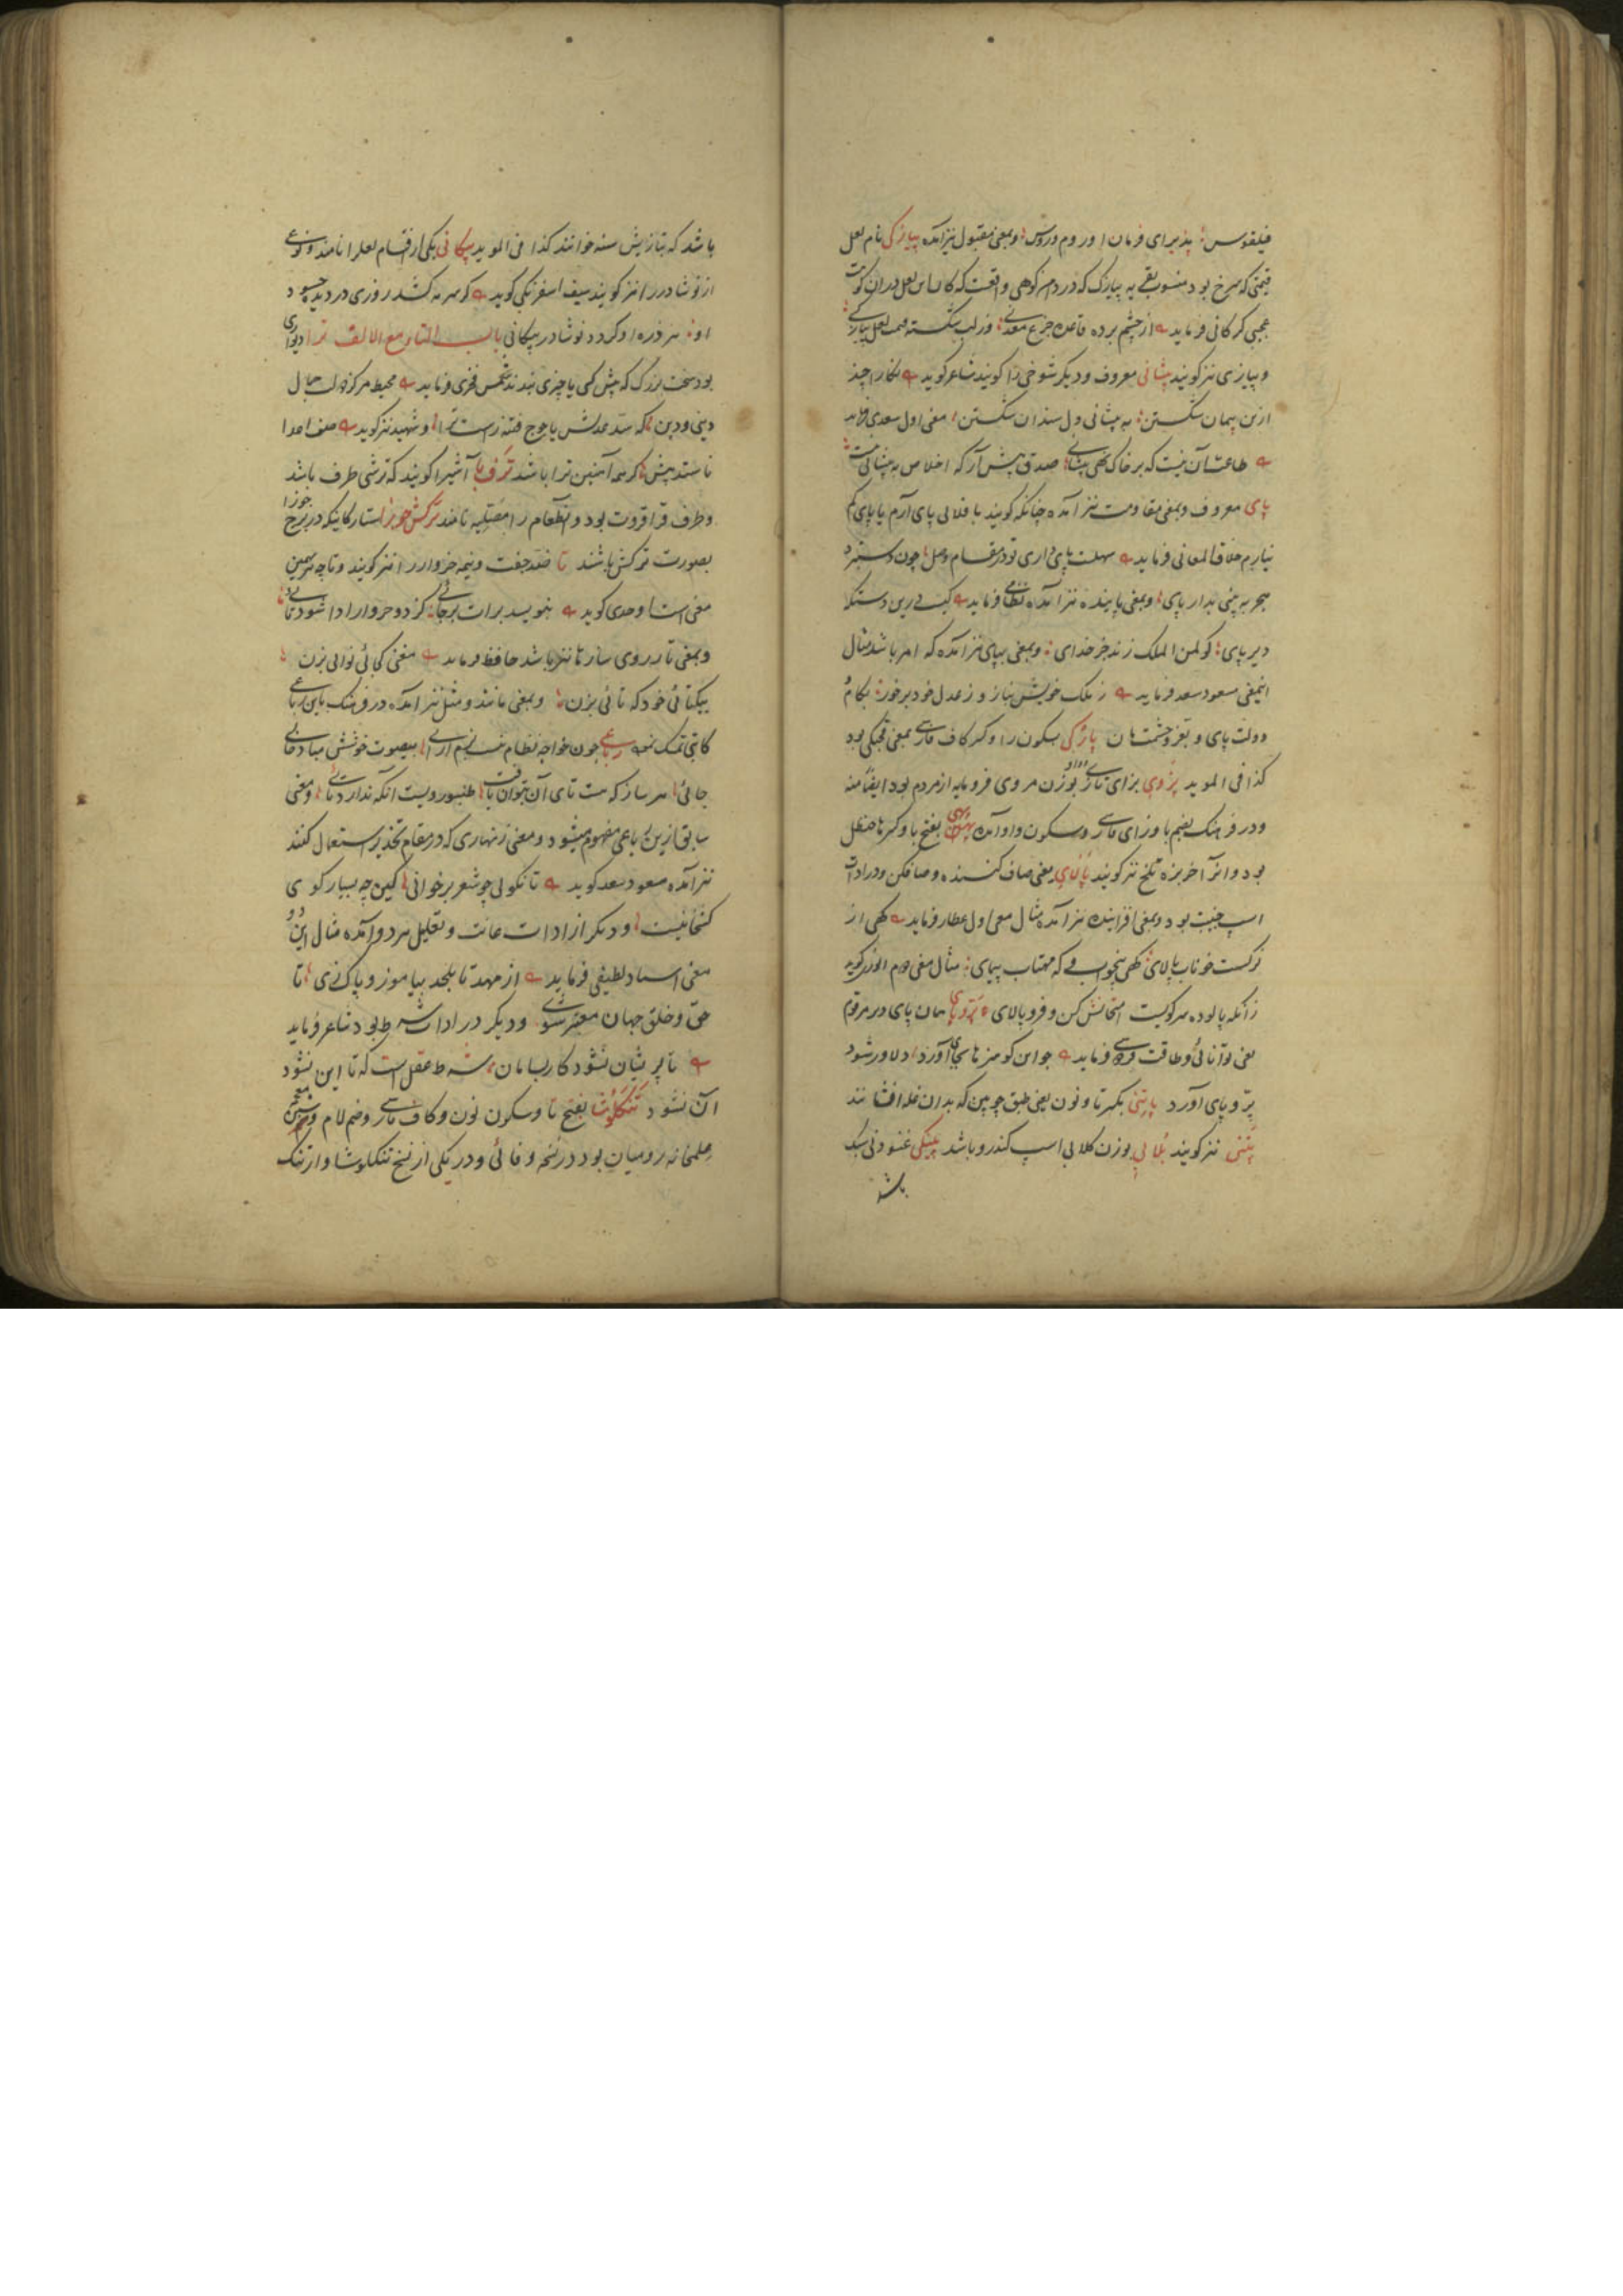 فیلقوس پذیرای فرمان او روم و روس و بمعنی مقبول نیز آمده پیازکی نام لعل
قیمتی که سرخ بود منسوب بقریه پیازک که در دامن کوهی واقعست که کان لعل در ان کوهست
عجیبی کرکانی فرماید از چشم برده قاعده جزع معدنی وز لب شکسته قیمت لعل پیازکی
و پیازی نیز کویند پیشانی معروف و دیکر شوخی را کویند شاعر کوید نکارا چند
ازین پیمان شکستن به پیشانی دل سندان شکستن معنی اول سعدی فرماید
طاعت آن نیست که بر خاک نهی پیشانی صدق پیش آر که اخلاص به پیشانی نیست
پای معروف و بمعنی مقاومت نیز آمده چنانکه کویند با فلانی پای آرم یا پای کم
نیارم خلاق المعانی فرماید سهلست پای داری تو در مقام وصل چون دستبرد
هجر به بینی بدار پای و بمعنی پاینده نیز آمده نظامی فرماید کیست درین دستکه
دیر پای کو لمن الملک زند جز خدای و بمعنی بپای نیز آمده که امر باشد مثال
اینمعنی مسعود سعد فرماید ز ملک خویش بناز و ز عدل خود برخور بکام
دولت پای و بعز و حشمت مان پازکی بسکون را و کسر کاف فارسی بمعنی
کذا فی الموید پژوی بزای تازی بوزن مروی فرومایه از مردم بود ایضا منه
و در فرهنک بضم با و زای فارسی و سکون واو آمده بفتح با و کسر ها حنظل
بود و انرا خربزه تلخ نیز کویند پالای یعنی صاف کننده و صاف کن و در ادات
اسپ جنیبت بود و بمعنی افزاینده نیز آمده مثال معنی اول عطار فرماید کهی از
نرکست خوناب پالای کهی که مهتاب پیمای مثال معنی دوم انوری کوید
زانکه پالوده سر کویست امتحانش کن و فرو پالای پر و پای همان پای در مرقوم
یعنی توانائی و طاقت فردوسی فرماید جوان کو هنرها بجای آورد دلاور شود
پر و پای آورد پاتنی بکسر تا و نون یعنی طبق چوبین که بدان غله افشانند
پتنی نیز کویند پلابی بوزن کلابی اسپ کندرو باشد پینکی غنودنی سبک
باشد
باشد که بتازیش سنه خوانند کذا فی الموید پیکانی یکی از اقسام لعل را نامند و نوعی
از نوشادر را نیز کویند سیف اسفرنکی کوید کر سرمه کشد روزی در دیده حسود
او هر ذره او کردد نوشادر پیکانی باب التاء مع الالف ترا دیواری
بود سخت بزرک که پیش کسی یا چیزی بندند شمس فخری فرماید محیط مرکز دولت جمال
دینی و دین که سد عدلش یاجوج فتنه راست ترا و شهید نیز کوید صف اعدا
نایستد پیشش کر همه آهنین ترا باشد ترف با آشیرا کویند که ترشی طرف باشد
و طرف قراقروت بود و انطعام را مضیلیه نامند ترکش جوزا ستارکانیکه در برج جوزا
بصورت ترکش باشند تا ضد جفت و نیمه خروار را نیز کویند و تاچه نیز بهمین
معنی است اوحدی کوید بنویسد برات بر جائی کز دو خروار ادا شود تائی
و بمعنی تار روی سازها نیز باشد حافظ فرماید مغنی کجائی نوائی بزن
بیکتائی خود که تائی بزن و بمعنی مانند و مثل نیز آمده در فرهنک باین رباعی
کاتبی تمسک نموده رباعی چون خواجه نظام نیست بزم آرائی بیصوت خوشش مبادخالی
جائی هر ساز که هست تای آن بتوان یافت طنبور ویست انکه ندارد تائی و معنی
سابق ازین رباعی مفهوم میشود و معنی زنهاری که در مقام تحذیر استعمال کنند
نیز آمده مسعود سعد کوید تا نکوئی چو شعر برخوانی کین چه بسیار کوی
کشخانیست و دیکر از ادات غایت و تعلیل هر دو آمده مثال این دو
معنی استاد لطیفی فرماید از مهد تا بلحد بیاموز و پاک زی تا
حق و خلق جهان معتبر شوی و دیکر در ادات شرط بود شاعر فرماید
تا پریشان نشود کار بسامان شرط عقل است که تا این نشود
آن نشود تنکلوشا بفتح تا و سکون نون و کاف فارسی و ضم لام و شین معجمه
علمخانه رومیان بود در نسخه وفائی و در یکی از نسخ تنکلوشا و ارتنک